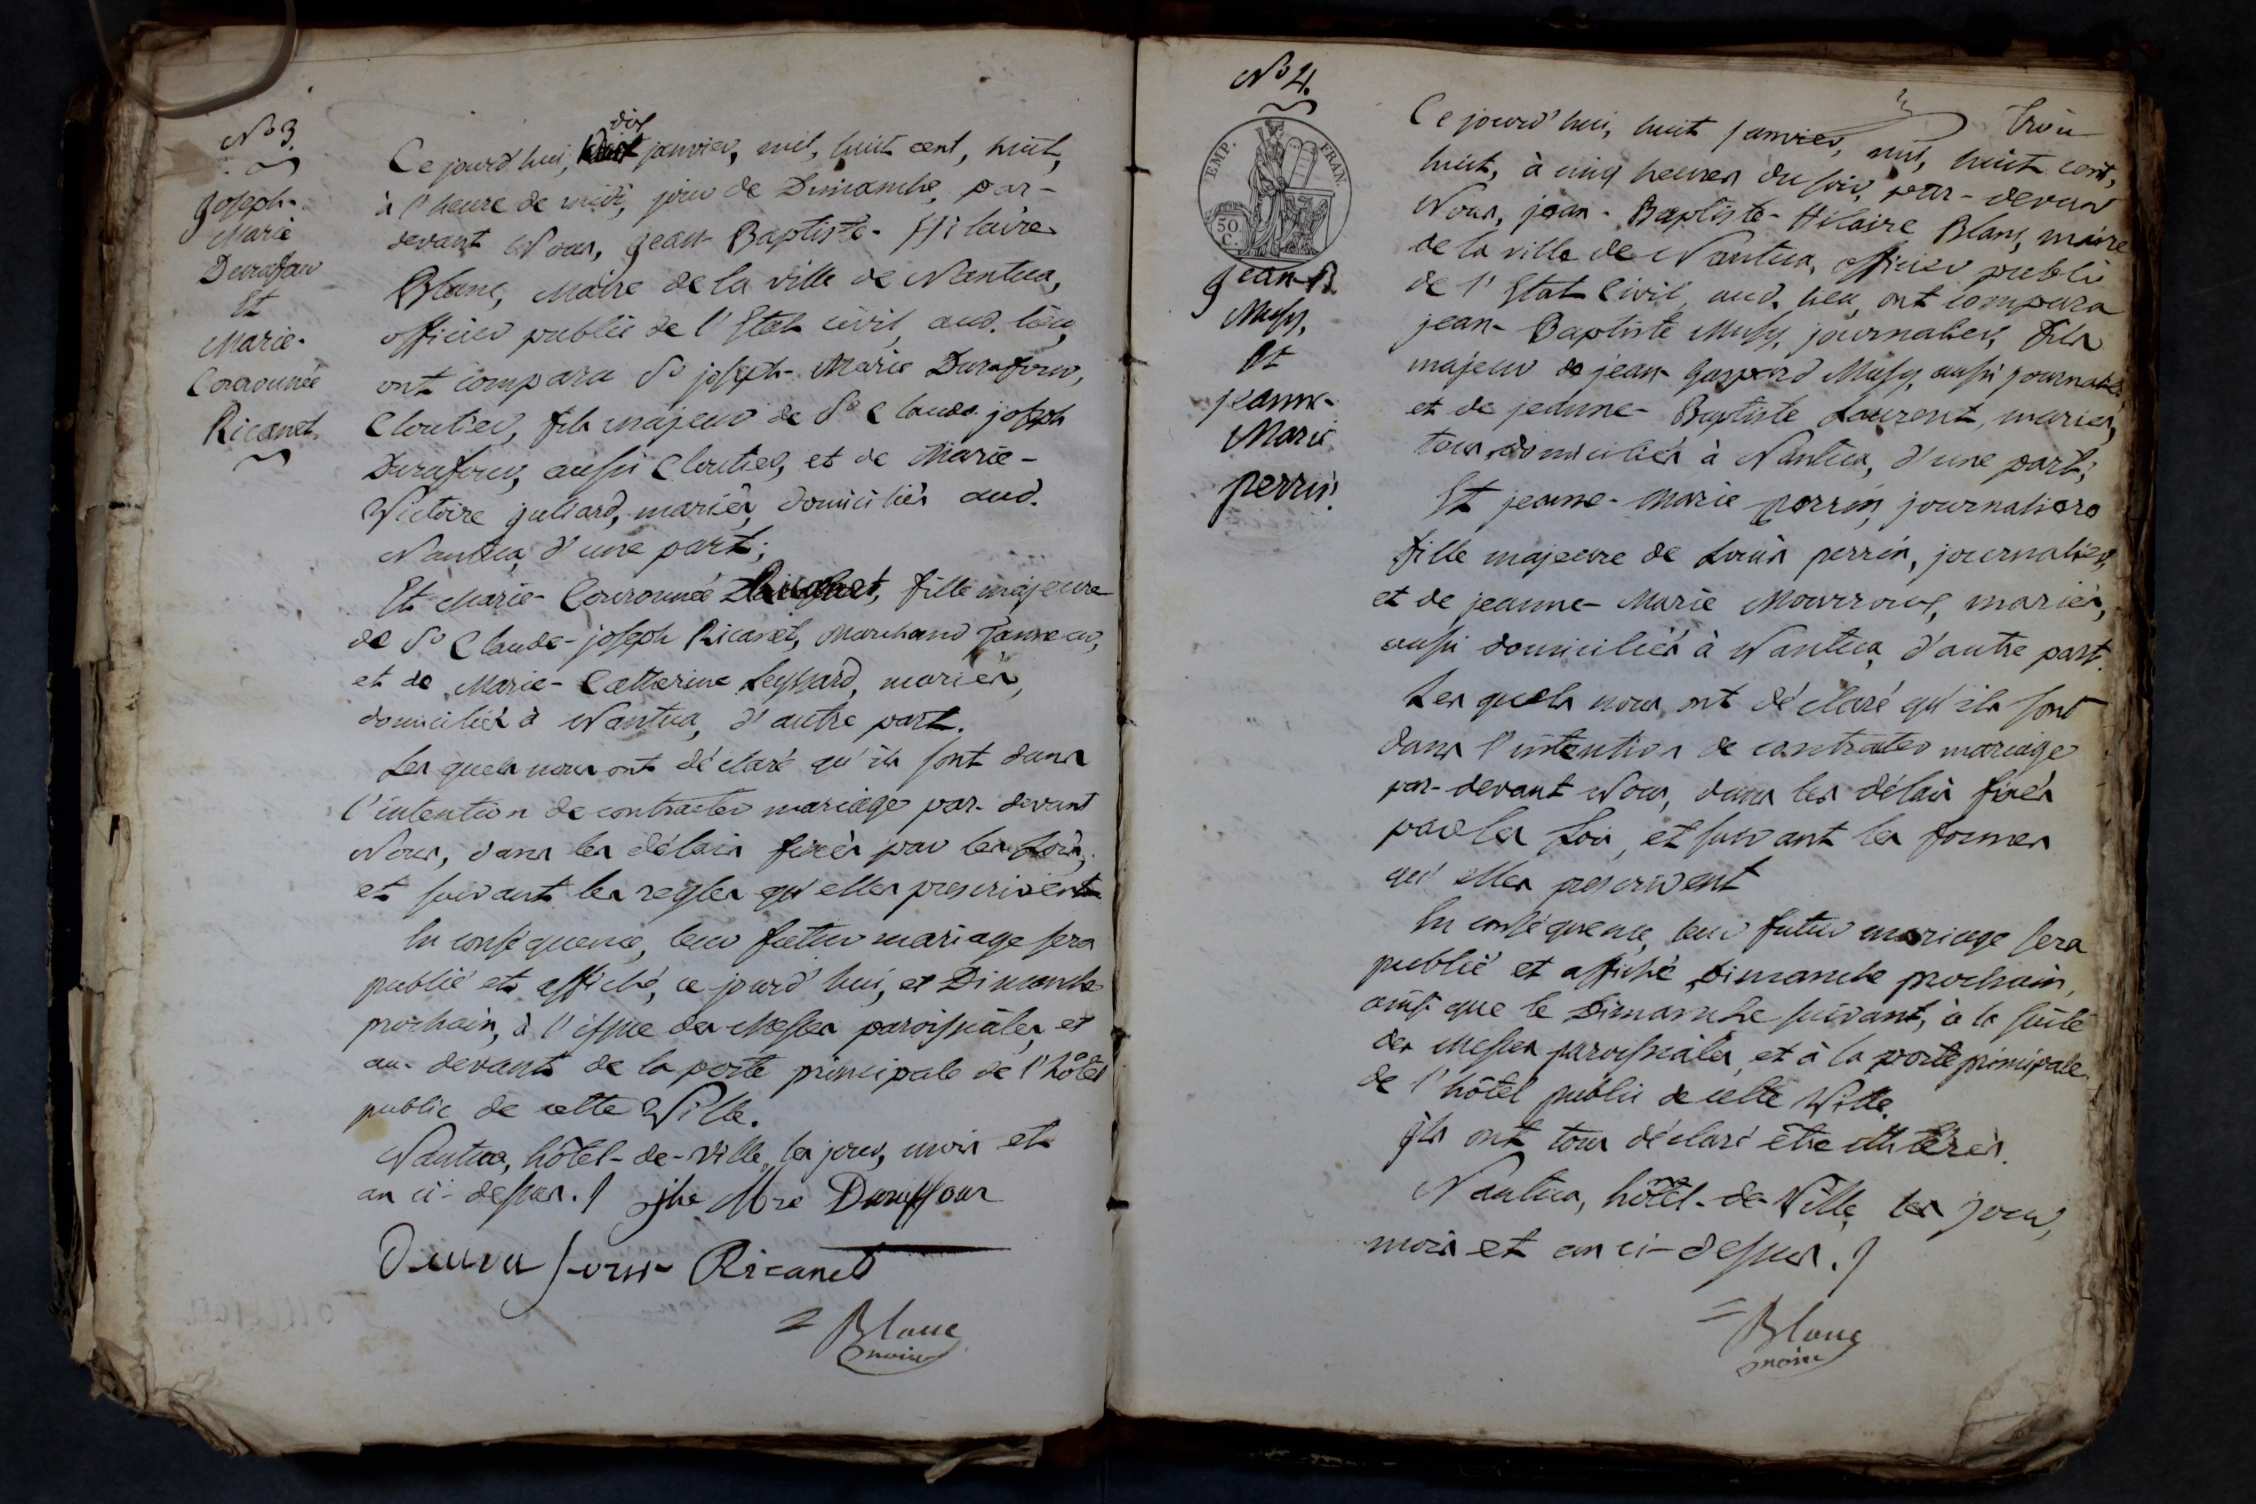 N.o 3.
Joseph-
Marie
Durafour
Et
Marie-
Couronnée
Ricanet.
Ce jourd'hui, dix janvier, mil, huit cent, huit,
à l'heure de midi, jour de Dimanche, par-
devant Nous, Jean-Baptiste-Hilaire
Blanc, Maire de la ville de Nantua,
officier public de l'Etat civil, aud. lieu,
ont comparu Sr joseph-Marie Durafour,
Cloutier, fils majeur de Sr Claude joseph
Durafour, aussi Cloutier, et de Marie-
Victoire Juliard, mariés, domiciliés aud.
Nantua, d'une part;
Et Marie-Couronnée Ricanet, fille majeure
de Sr Claude-joseph Ricanet, Marchand Tanneur,
et de Marie-Catherine Leyssard, mariés,
domiciliés à Nantua, d'autre part.
Les quels nous ont déclaré qu'ils sont dans
l'intention de contracter mariage par-devant
Nous, dans les délais fixés par les Lois,
et suivant les regles qu'elles prescrivent.
En conséquence, leur futur mariage sera
publié et affiché, ce jourd'hui, et Dimanche
prochain, à l'issue des Messes paroissiales, et
au-devant de la porte principale de l'hôtel
public de cette Ville.
Nantua, hôtel-de-Ville, les jour, mois et
an ci-dessus./ jhe Mre Duraffour
Durafour Ricanet
= Blanc
maire
N.o 4.
EMP. FRAN.
50
C.
Jean-B.
Mussy,
Et
jeanne-
Marie
perrin.
Trois
Ce jourd'hui, huit janvier, mil, huit cent,
huit, à cinq heures du soir, par-devant
Nous, jean-Baptiste-Hilaire Blanc, maire
de la ville de Nantua, officier public
de l'Etat Civil, aud. lieu, ont comparu
jean-Baptiste Mussy, journalier, fils
majeur de jean Gaspard Mussy, aussi journalier
et de jeanne-Baptiste Laurent, mariés,
tous domiciliés à Nantua, d'une part;
Et jeanne-Marie perrin, journaliere
fille majeure de Louis perrin, journalier,
et de jeanne-Marie Mourroux, mariés,
aussi domiciliés à Nantua, d'autre part.
Les quels nous ont déclaré qu'ils sont
dans l'intention de contracter mariage
par-devant Nous, dans les délais fixés
par les Lois, et suivant les formes
qu'elles prescrivent
En conséquence, leur futur mariage sera
publié et affiché Dimanche prochain,
ainsi que le Dimanche suivant, à la suite
des Messes paroissiales, et à la porte principale
de l'hôtel public de cette Ville.
Ils ont tous déclaré être illitérés.
Nantua, hôtel-de-Ville, les jour,
mois et an ci-dessus./
= Blanc
maire